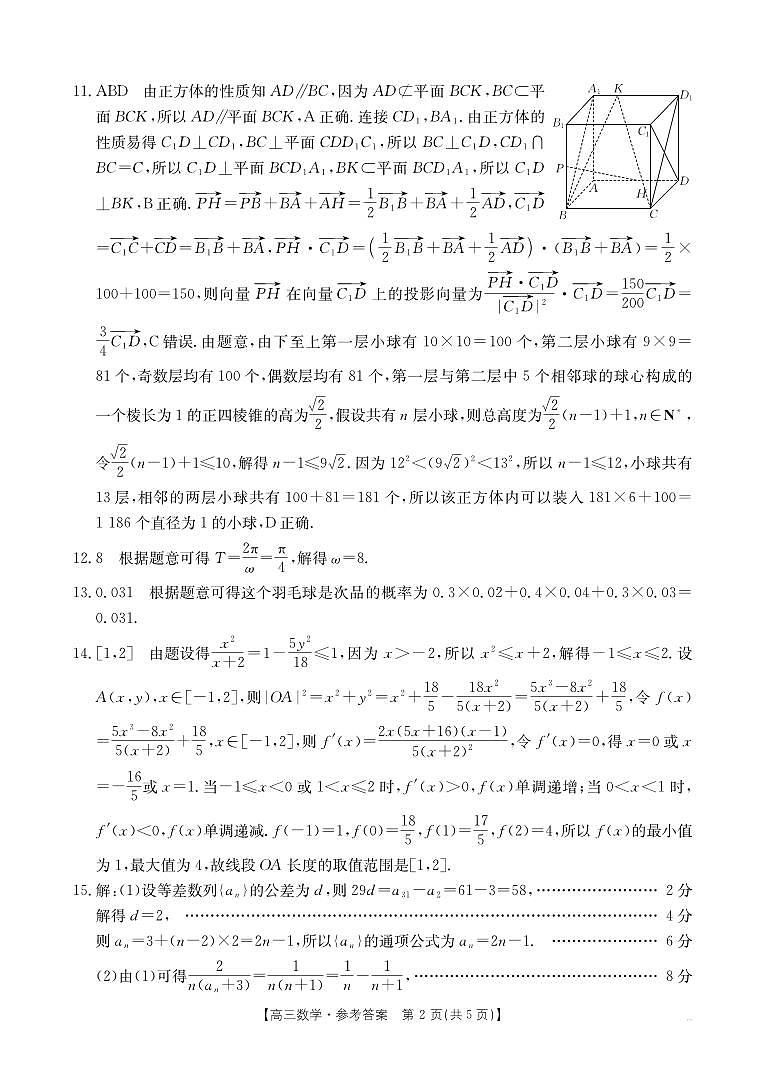 11. ABD　由正方体的性质知 AD∥BC,因为 AD⊄平面 BCK,BC⊂平
面 BCK,所以 AD∥平面 BCK,A 正确. 连接 CD₁,BA₁. 由正方体的
性质易得 C₁D⊥CD₁,BC⊥平面 CDD₁C₁,所以 BC⊥C₁D,CD₁∩
BC=C,所以 C₁D⊥平面 BCD₁A₁,BK⊂平面 BCD₁A₁,所以 C₁D
⊥BK,B 正确. $\overrightarrow{PH}=\overrightarrow{PB}+\overrightarrow{BA}+\overrightarrow{AH}=\frac{1}{2}\overrightarrow{B_1B}+\overrightarrow{BA}+\frac{1}{2}\overrightarrow{AD},\overrightarrow{C_1D}$
$=\overrightarrow{C_1C}+\overrightarrow{CD}=\overrightarrow{B_1B}+\overrightarrow{BA},\overrightarrow{PH}\cdot\overrightarrow{C_1D}=\left(\frac{1}{2}\overrightarrow{B_1B}+\overrightarrow{BA}+\frac{1}{2}\overrightarrow{AD}\right)\cdot(\overrightarrow{B_1B}+\overrightarrow{BA})=\frac{1}{2}\times$
100+100=150,则向量 $\overrightarrow{PH}$ 在向量 $\overrightarrow{C_1D}$ 上的投影向量为 $\frac{\overrightarrow{PH}\cdot\overrightarrow{C_1D}}{|\overrightarrow{C_1D}|^2}\cdot\overrightarrow{C_1D}=\frac{150}{200}\overrightarrow{C_1D}=$
$\frac{3}{4}\overrightarrow{C_1D}$,C 错误. 由题意,由下至上第一层小球有 10×10=100 个,第二层小球有 9×9=
81 个,奇数层均有 100 个,偶数层均有 81 个,第一层与第二层中 5 个相邻球的球心构成的
一个棱长为 1 的正四棱锥的高为$\frac{\sqrt{2}}{2}$,假设共有 n 层小球,则总高度为$\frac{\sqrt{2}}{2}$(n−1)+1,n∈N*,
令$\frac{\sqrt{2}}{2}$(n−1)+1≤10,解得 n−1≤9√2. 因为 12²<(9√2)²<13²,所以 n−1≤12,小球共有
13 层,相邻的两层小球共有 100+81=181 个,所以该正方体内可以装入 181×6+100=
1 186 个直径为 1 的小球,D 正确.
A₁ K D₁
B₁ C₁
P A H D
B C
12. 8　根据题意可得 $T=\frac{2\pi}{\omega}=\frac{\pi}{4}$,解得 ω=8.
13. 0.031　根据题意可得这个羽毛球是次品的概率为 0.3×0.02+0.4×0.04+0.3×0.03=
0.031.
14. [1,2]　由题设得$\frac{x^2}{x+2}=1-\frac{5y^2}{18}$≤1,因为 x>−2,所以 x²≤x+2,解得−1≤x≤2. 设
A(x,y),x∈[−1,2],则|OA|²=x²+y²=x²+$\frac{18}{5}-\frac{18x^2}{5(x+2)}=\frac{5x^3-8x^2}{5(x+2)}+\frac{18}{5}$,令 f(x)
=$\frac{5x^3-8x^2}{5(x+2)}+\frac{18}{5}$,x∈[−1,2],则 f′(x)=$\frac{2x(5x+16)(x-1)}{5(x+2)^2}$,令 f′(x)=0,得 x=0 或 x
=−$\frac{16}{5}$或 x=1. 当−1≤x<0 或 1<x≤2 时,f′(x)>0,f(x)单调递增;当 0<x<1 时,
f′(x)<0,f(x)单调递减. f(−1)=1,f(0)=$\frac{18}{5}$,f(1)=$\frac{17}{5}$,f(2)=4,所以 f(x)的最小值
为 1,最大值为 4,故线段 OA 长度的取值范围是[1,2].
15. 解:(1)设等差数列{aₙ}的公差为 d,则 29d=a₃₁−a₂=61−3=58,…………………… 2 分
解得 d=2, ………………………………………………………………………… 4 分
则 aₙ=3+(n−2)×2=2n−1,所以{aₙ}的通项公式为 aₙ=2n−1. ………………… 6 分
(2)由(1)可得$\frac{2}{n(a_n+3)}=\frac{1}{n(n+1)}=\frac{1}{n}-\frac{1}{n+1}$,……………………………………… 8 分
【高三数学·参考答案　第 2 页(共 5 页)】